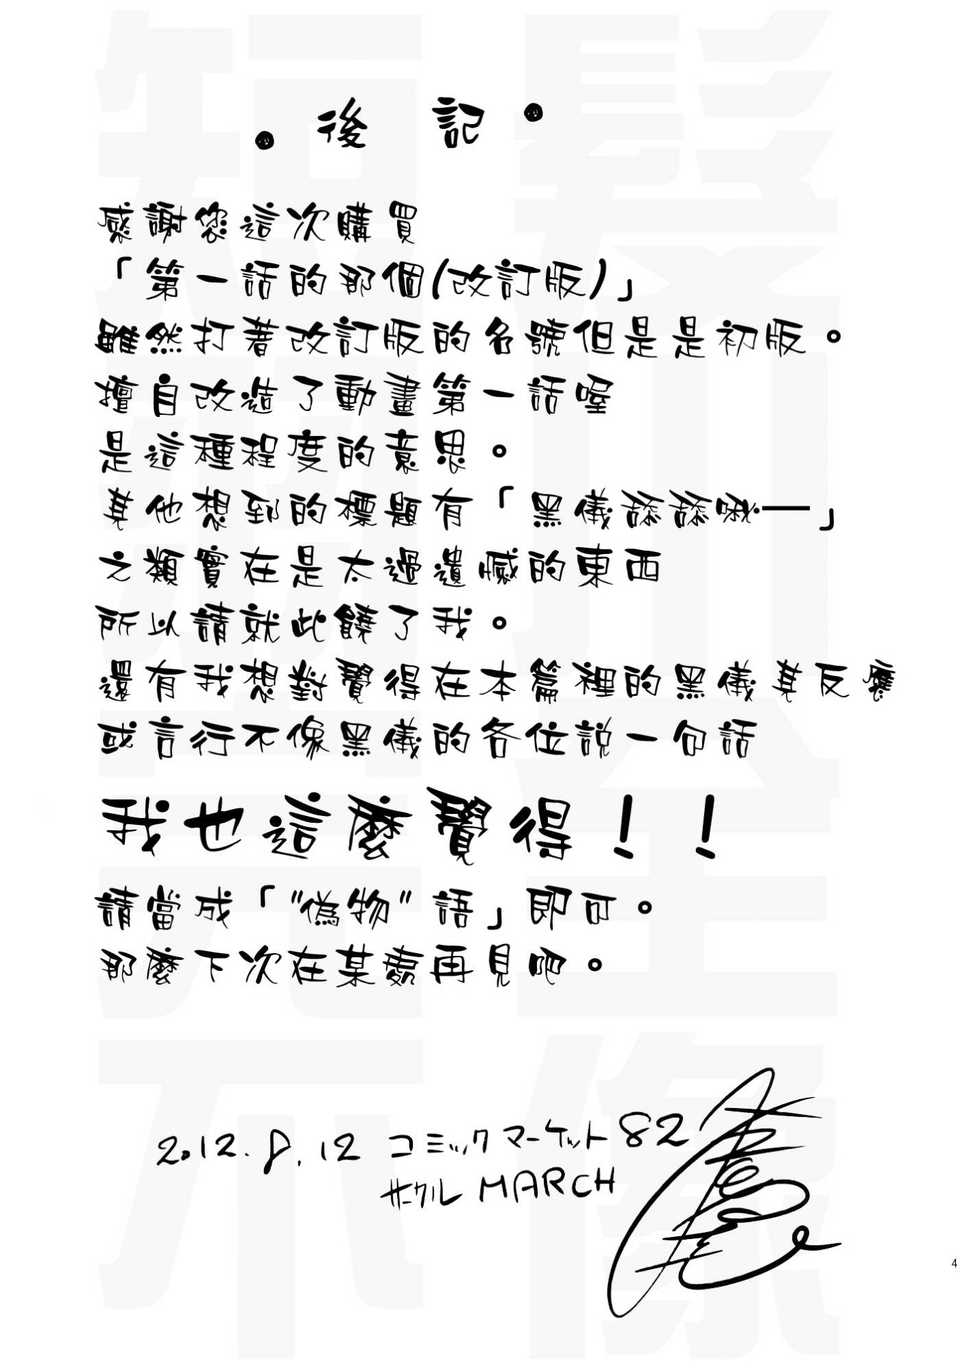 。後記。
感謝您這次購買
「第一話的那個(改訂版)」
雖然打著改訂版的名號但是是初版。
擅自改造了動畫第一話喔
是這種程度的意思。
其他想到的標題有「黑儀舔舔啾──」
之類實在是太過遺憾的東西
所以請就此饒了我。
還有我想對覺得在本篇裡的黑儀其反應
或言行不像黑儀的各位說一句話
我也這麼覺得！！
請當成「"偽物"語」即可。
那麼下次在某處再見吧。
2012.8.12 コミックマーケット82
サークル MARCH
4